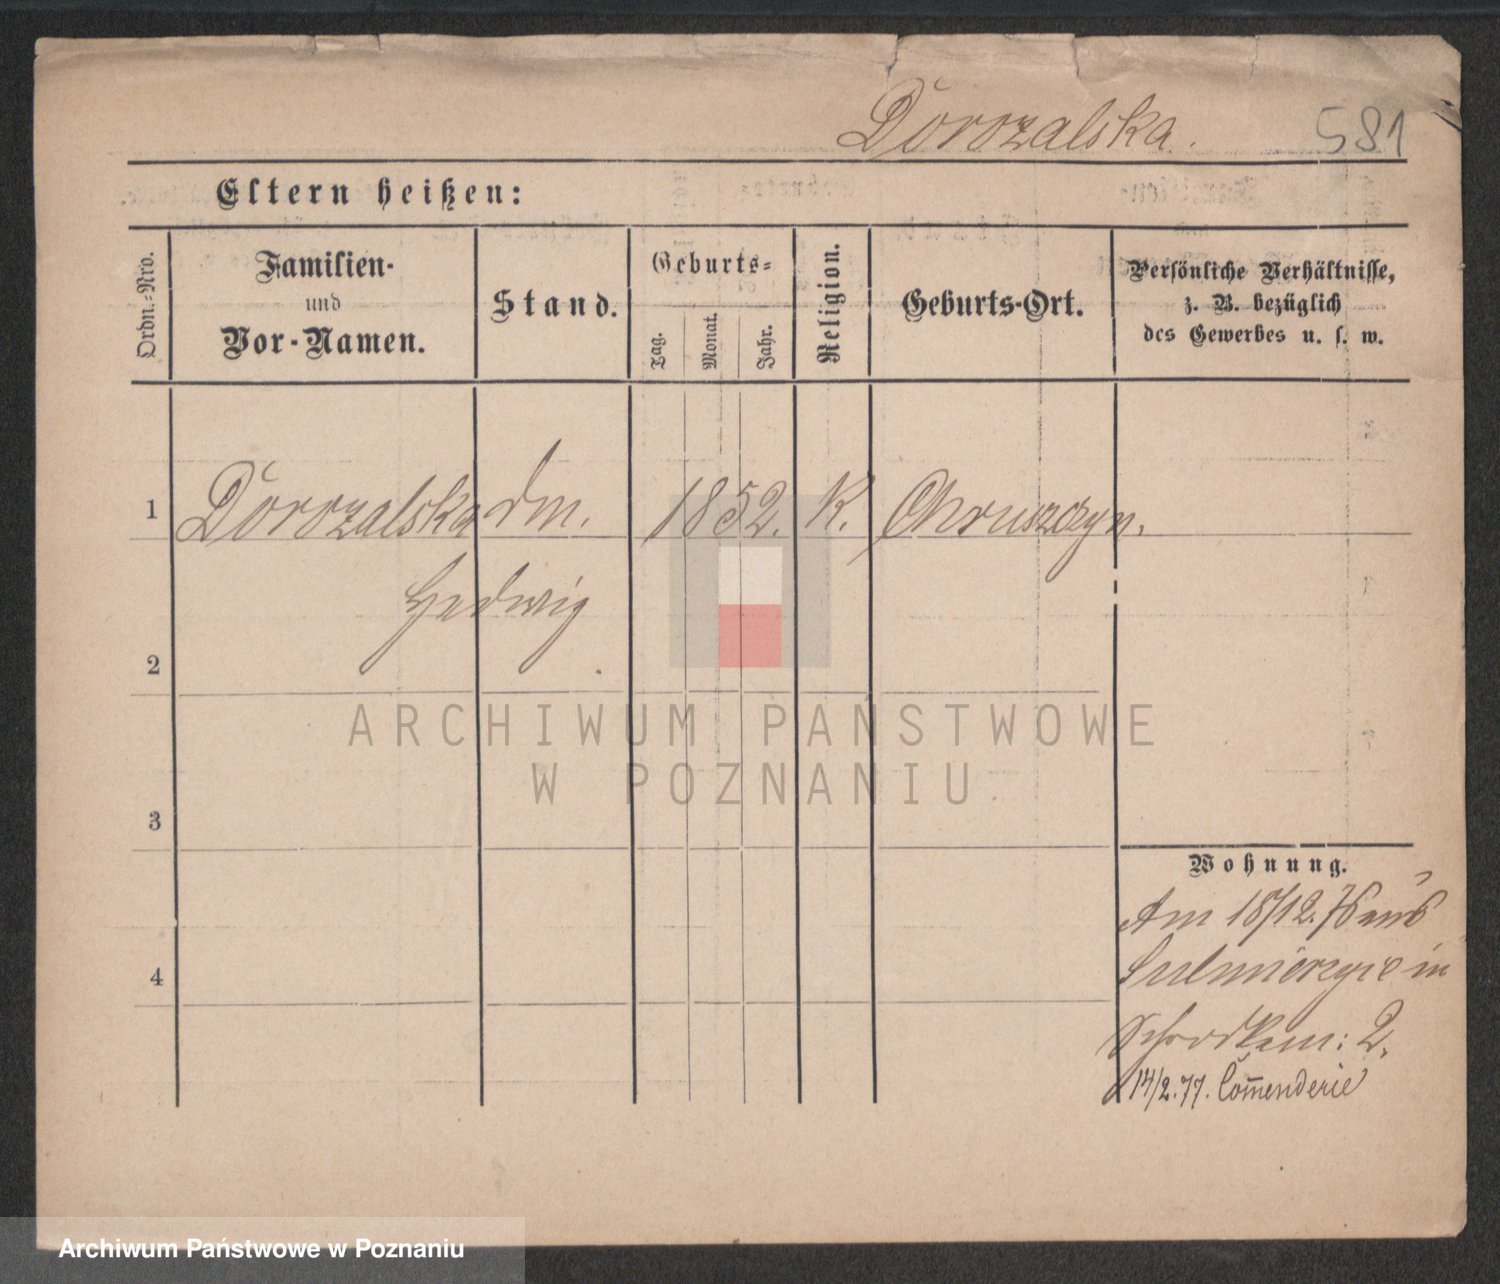 Dorozalska.
581
Eltern heißen:
Ordn.-Nro.
Familien-
und
Vor-Namen.
Stand.
Geburts-
Tag.
Monat.
Jahr.
Religion.
Geburts-Ort.
Persönliche Verhältnisse,
z. B. bezüglich
des Gewerbes u. s. w.
1 Dorozalska dm. 1852. K. Chruszczyn.
Hedwig
2
3
4
Wohnung.
Am 18/12. 76 aus
Sulmierzyce in
2.
14/2. 77. Com̄enderie
ARCHIWUM PAŃSTWOWE
W POZNANIU
Archiwum Państwowe w Poznaniu